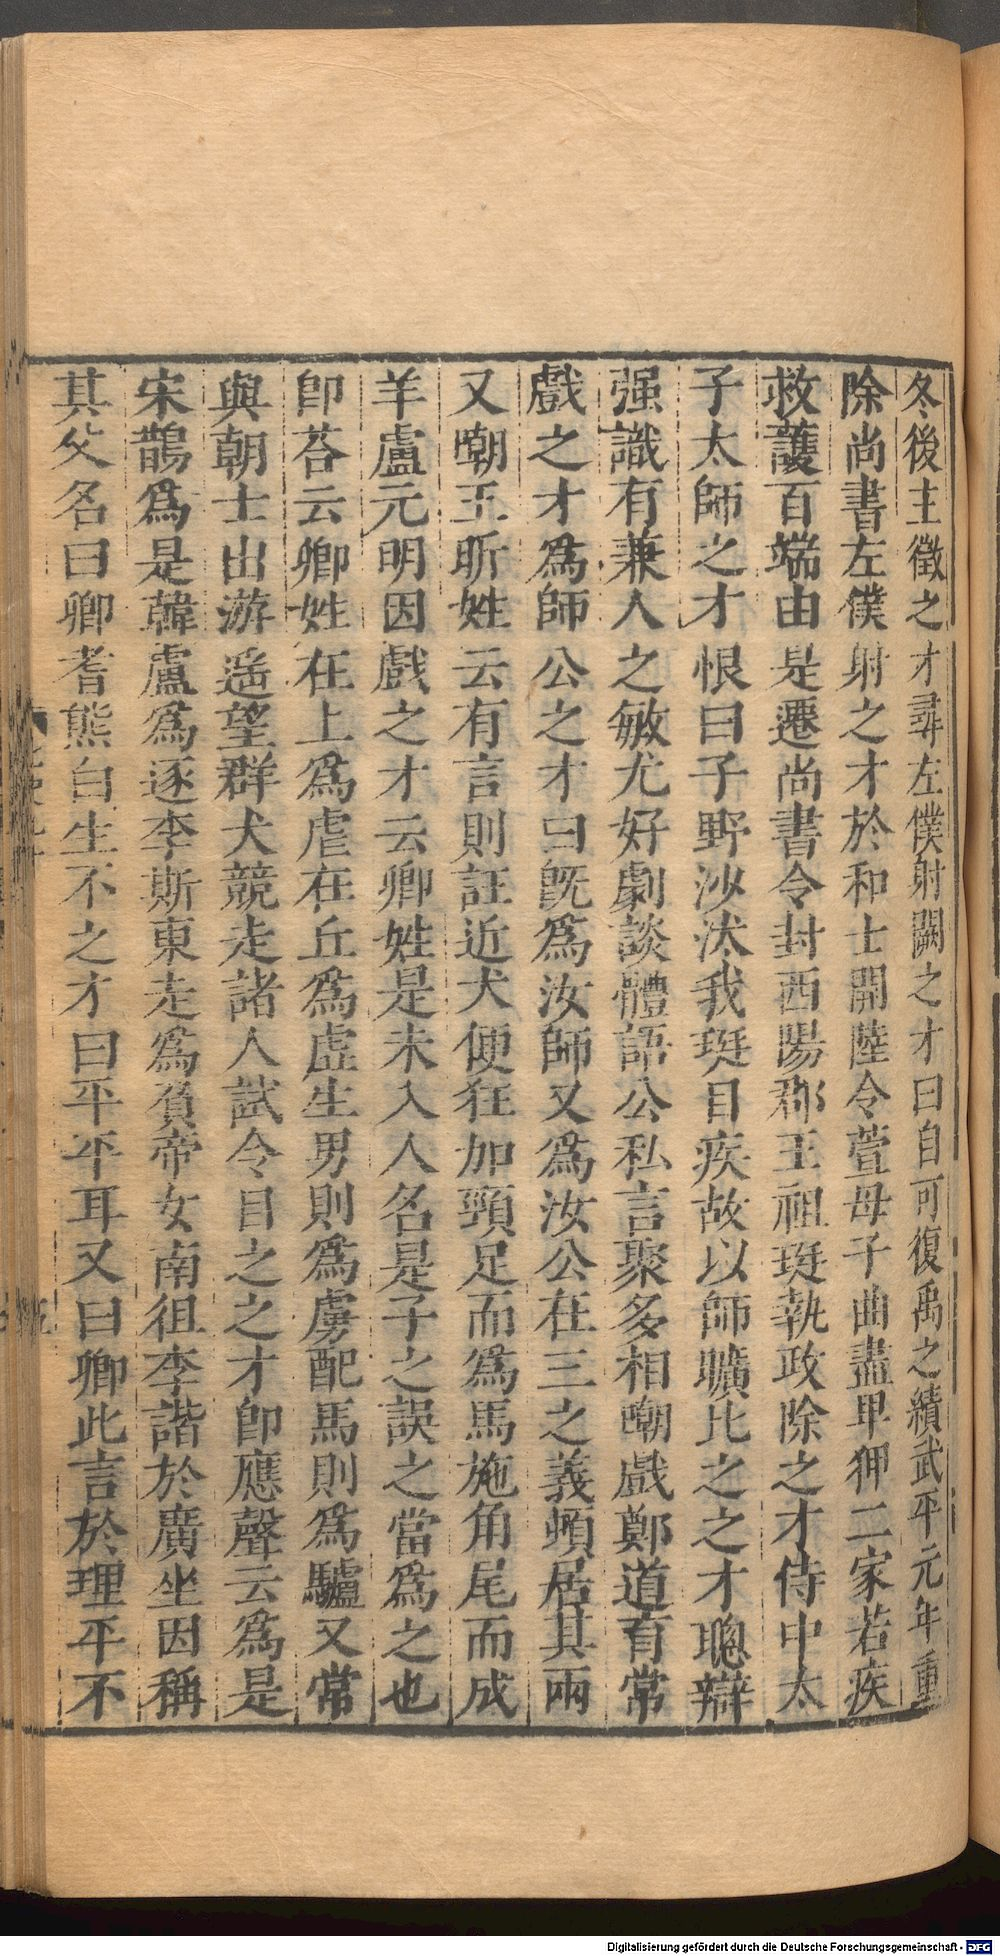 冬後主徵之才尋左僕射闕之才曰自可復禹之績武平元年重
除尚書左僕射之才於和士開陸令萱母子曲盡卑狎二家若疾
救護百端由是遷尚書令封西陽郡王祖珽執政除之才侍中太
子太師之才恨曰子野沙汰我珽目疾故以師曠比之之才聰辯
强識有兼人之敏尤好劇談體語公私言聚多相嘲戲鄭道育常
戲之才爲師公之才曰旣爲汝師又爲汝公在三之義頓居其兩
又嘲王昕姓云有言則訨近犬便狂加頸足而爲馬施角尾而成
羊盧元明因戲之才云卿姓是未入人名是子之誤之當爲之也
卽荅云卿姓在上爲虐在丘爲虛生男則爲虜配馬則爲驢又常
與朝士出游遥望群犬競走諸人試令目之之才卽應聲云爲是
宋鵲爲是韓盧爲逐李斯東走爲負帝女南徂李諧於廣坐因稱
其父名曰卿耆熊白生不之才曰平平耳又曰卿此言於理平不
Digitalisierung gefördert durch die Deutsche Forschungsgemeinschaft - DFG